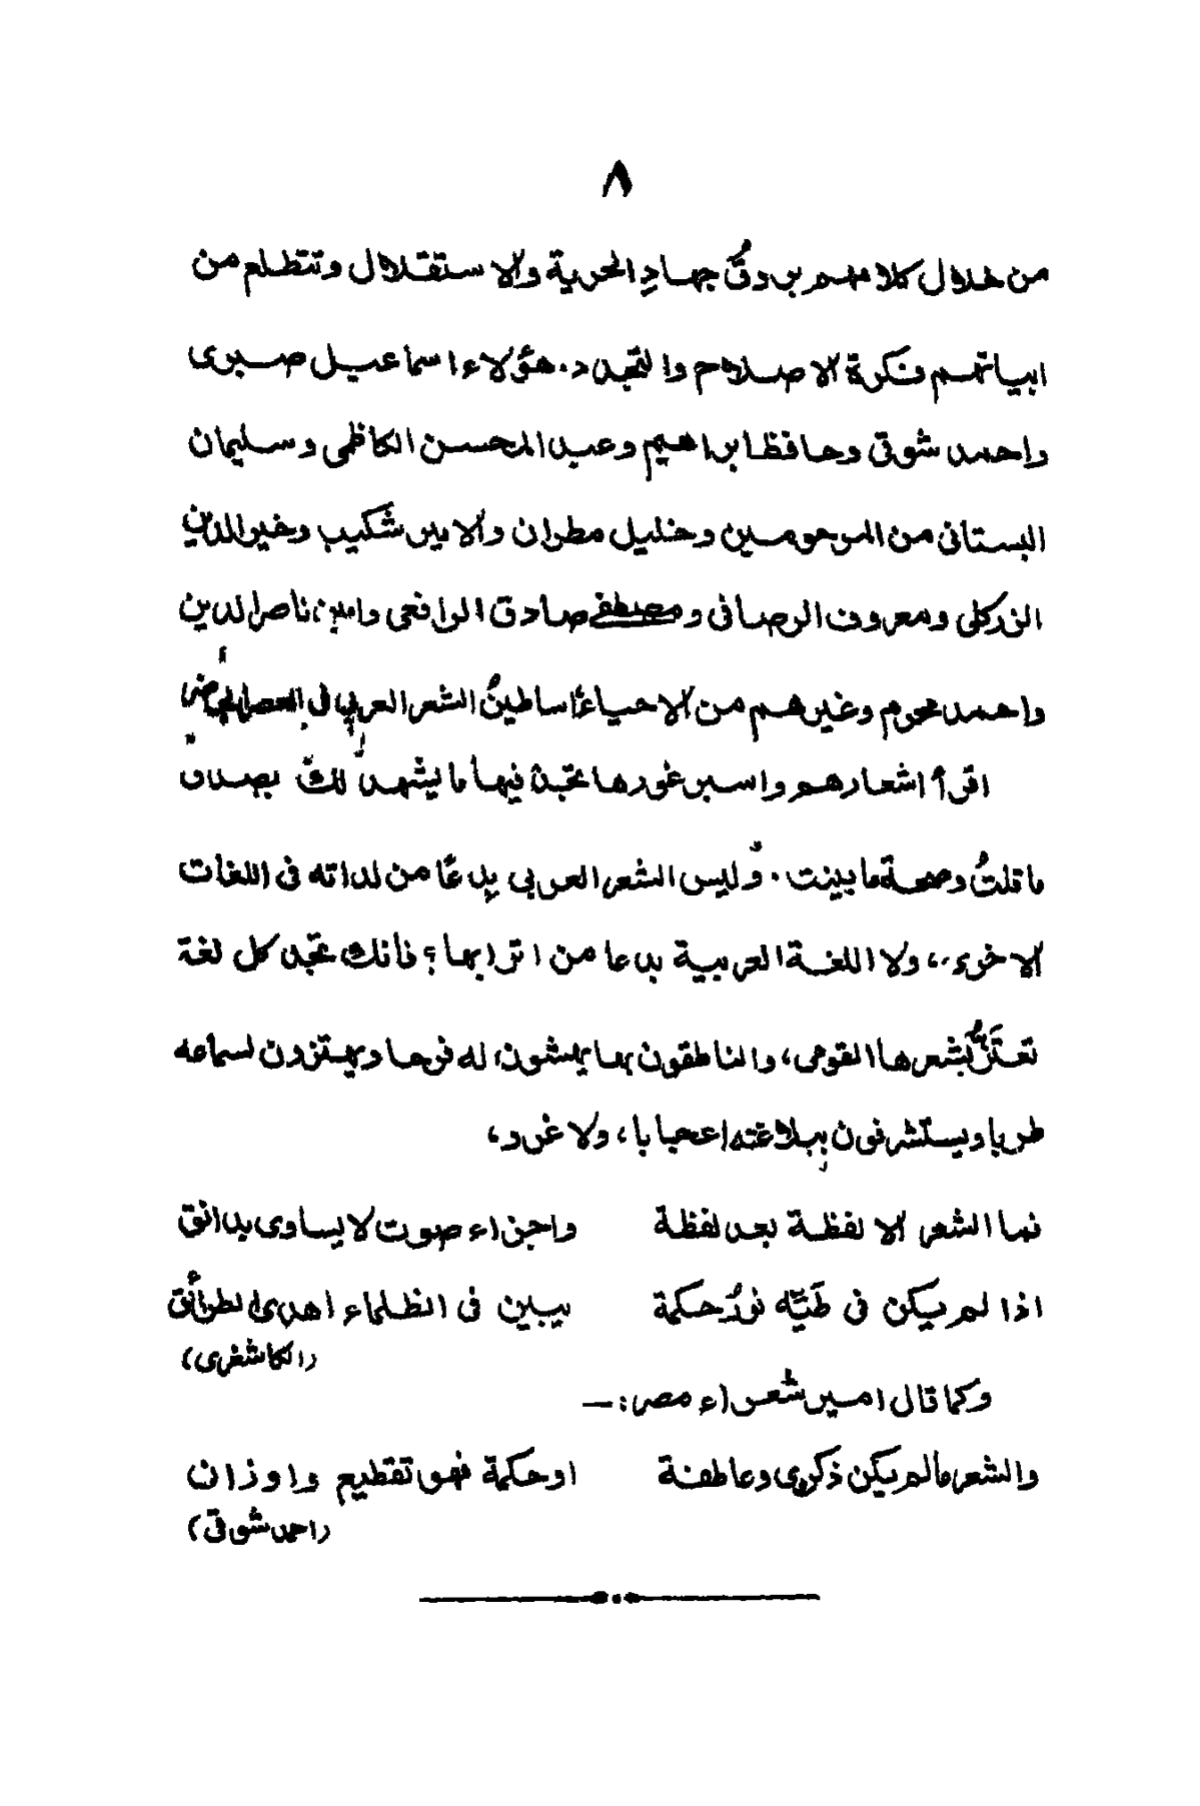 ٨
من خلال كلامهم بروقُ جهادِ الحرية والاستقلال وتتطلع من
ابياتهم فكرة الاصلاح والتجدد. هؤلاء اسماعيل صبرى
واحمد شوقى وحافظ ابراهيم وعبد المحسن الكاظمى وسليمان
البستانى من المرحومين وخليل مطران والامير شكيب وخير الدين
الزركلى ومعروف الرصافى ومصطفى صادق الرافعى وامين ناصر الدين
واحمد محرم وغيرهم من الاحياء أساطينُ الشعر العربي فى العصر
اقرأ اشعارهم واسبر غورها تجد فيها ما يشهد لك بصدق
ما قلتُ وصحة ما بينت. وليس الشعر العربي بِدعًا من لداته فى اللغات
الاخرى، ولا اللغة العربية بدعا من اترابها؛ فانك تجد كل لغة
تعتَزُّ بشعرها القومى، والناطقون بها يهشون له فرحا ويهتزون لسماعه
طربا ويستشرفون ببلاغته اعجابا، ولا غرو،
فما الشعر الا لفظة بعد لفظة واجزاء صوت لا يساوى بدانق
اذا لم يكن فى طَيِّه نورُ حكمة يبين فى الظلماء اهدى الطرائق
(الكاشغرى)
وكما قال امير شعراء مصر: —
والشعر مالم يكن ذكرى وعاطفة او حكمة فهو تقطيع واوزان
(احمد شوقى)